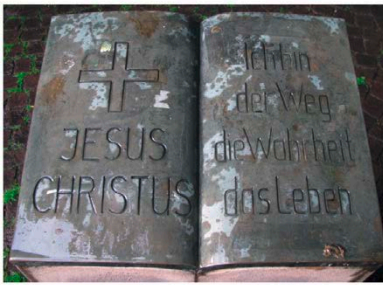 JESUS
CHRISTUS
Ich bin
der Weg
die Wahrheit
das Leben